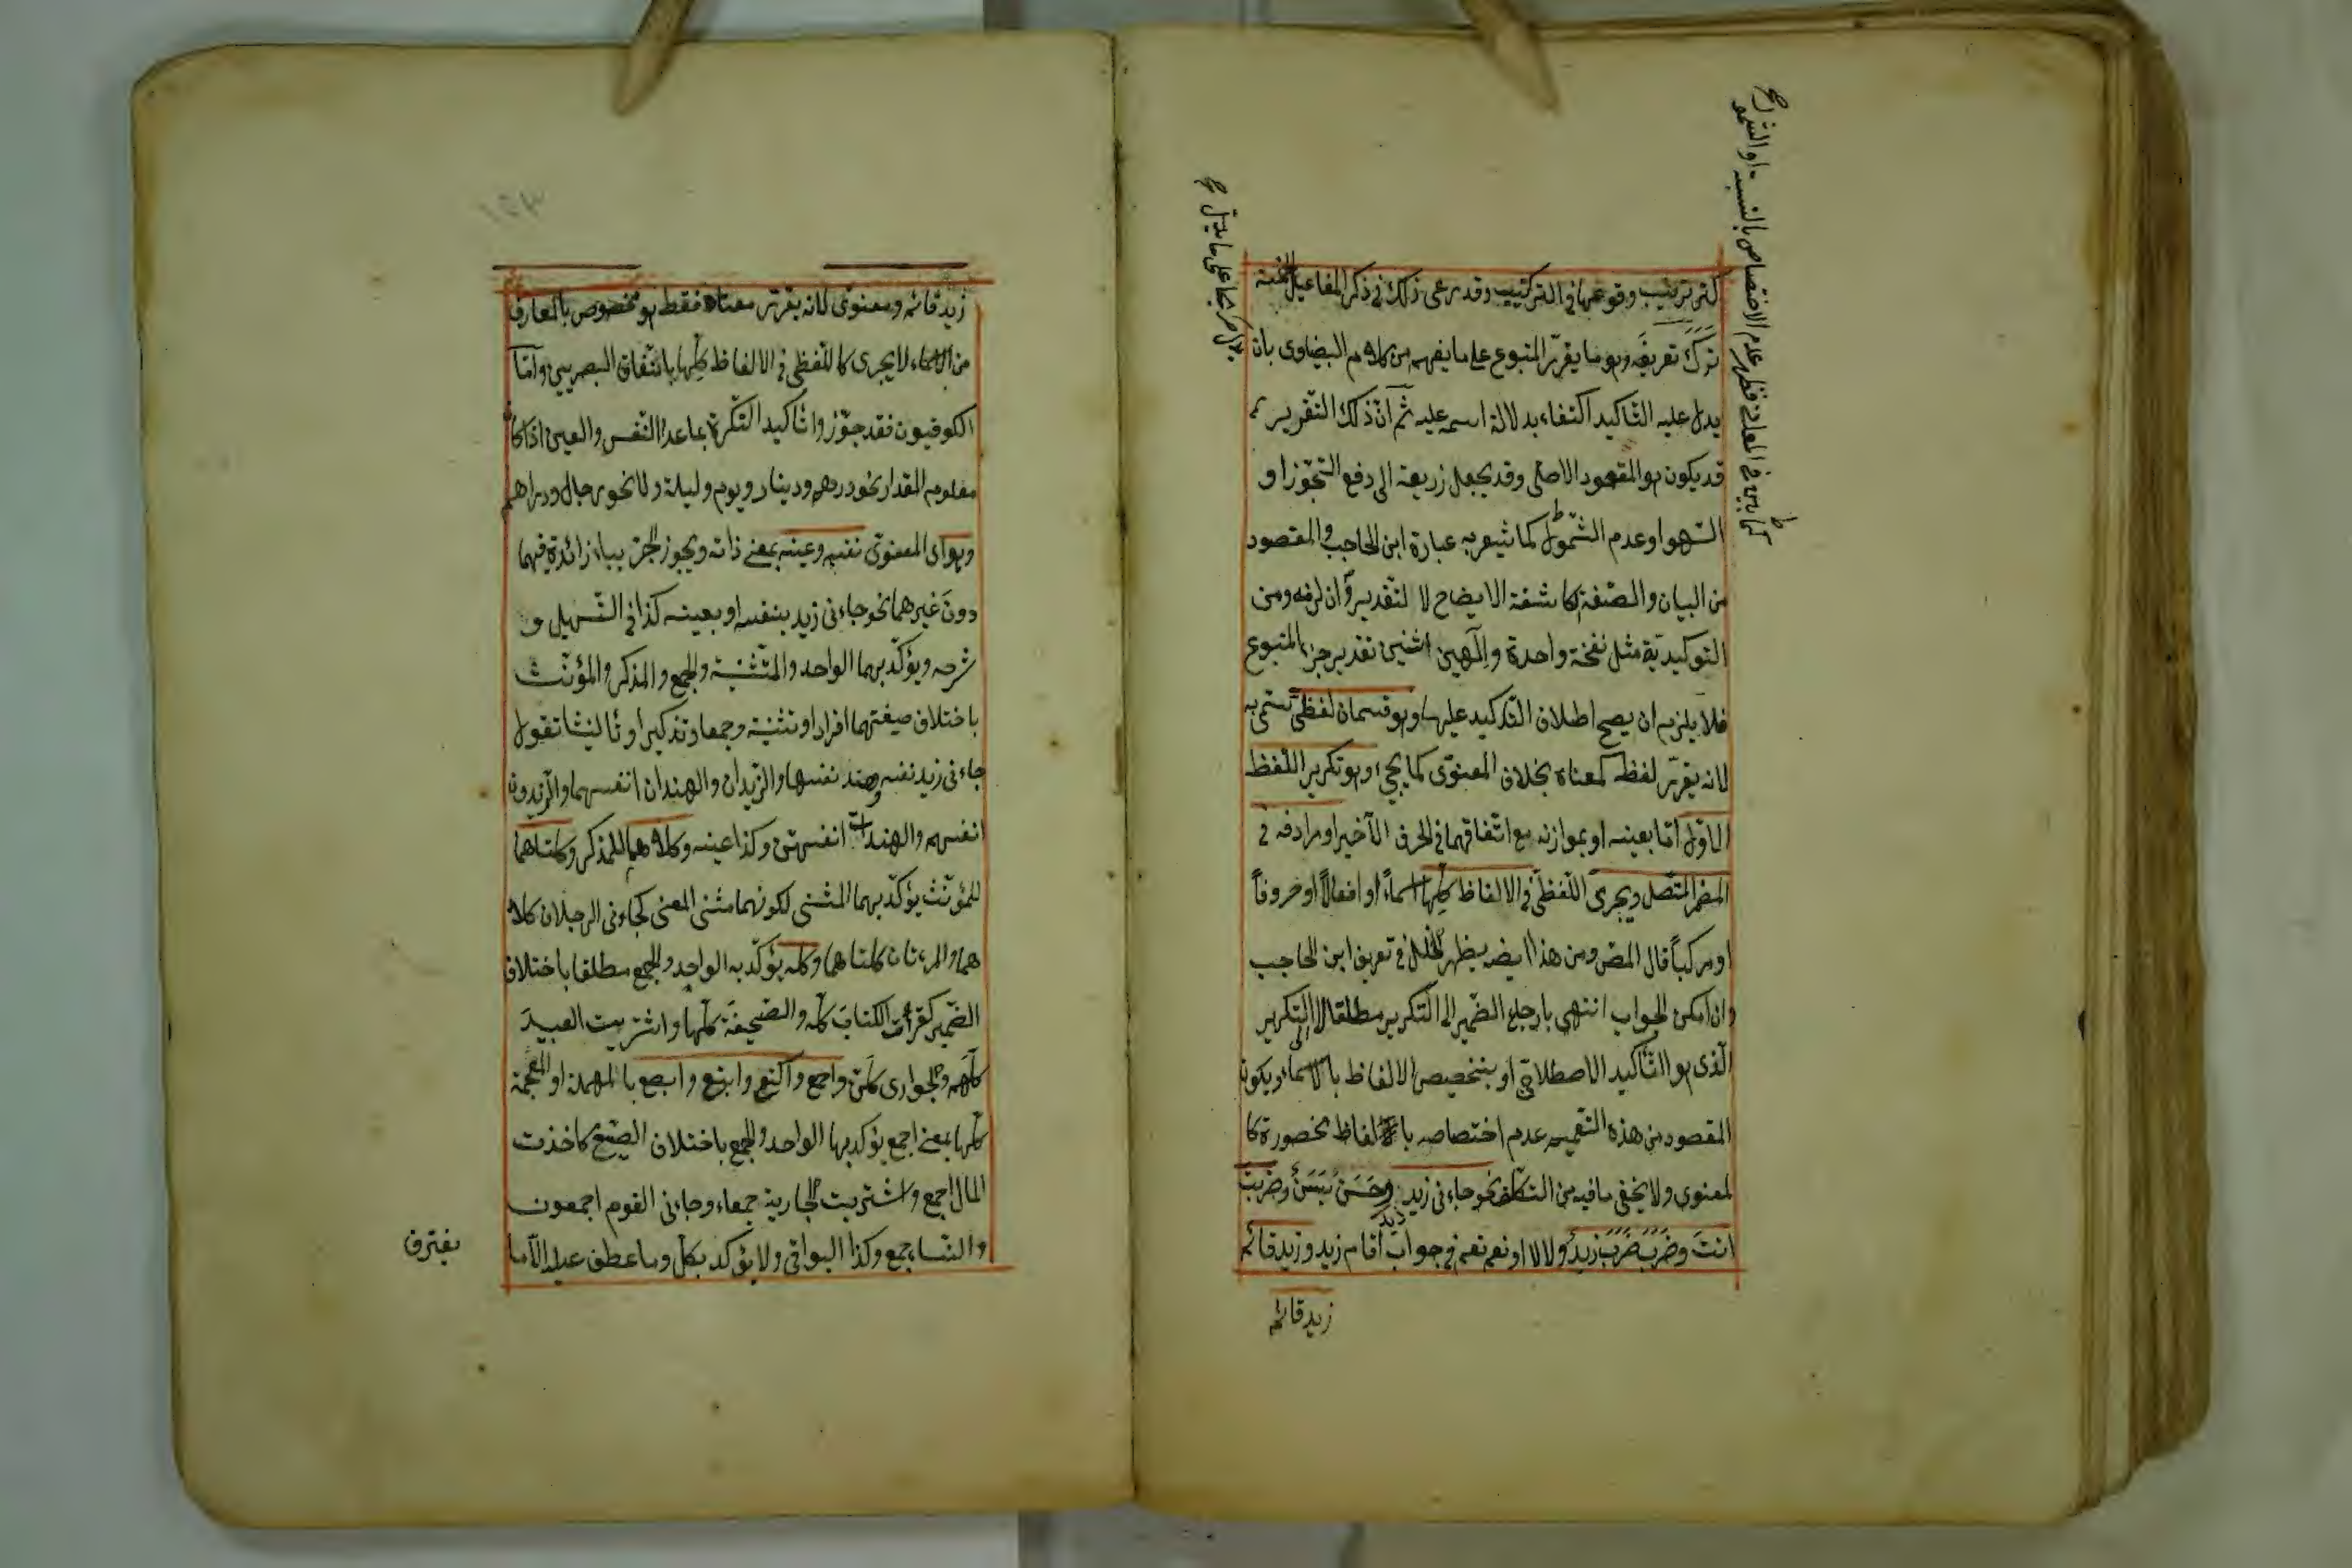 كترتيب وقوعها في التركيب وقد رعى ذلك في ذكر المفاعيل الخمسة
ترك تعريفه وهو ما يقرّر المتبوع على ما يفهم من كلام البيضاوى بان
يدل عليه التّاكيد اكتفاء بدلالة اسمه عليه ثم انّ ذلك التّقرير
قد يكون هو المقصود الاصلى وقد يجعل زريعة الى دفع التّجوّز او
السّهو او عدم الشّمول كما تشعر به عبارة ابن الحاجب والمقصود
من البيان والصّفة الكاشفة الايضاح لا لتّقدير وان لزمه ومن
التوكيديّة مثل نفخة واحدة والٓهين اثنين تقدير جزء المتبوع
فلا يلزم ان يصح اطلاق التّاكيد عليها وهو قسمان لفظىّ تسمّى به
لانه يقرّر لفظه كمعناه بخلاف المعنوّى كما يجيء وهو تكرير اللّفظ
الاوّل امّا بعينه او بموازنه مع اتّفاقهما في الحرف الآخير او مرادفه في
المضمر المتّصل ويجرى اللّفظىّ في الالفاظ كلّها اسماءً او افعالاً او حروفاً
او مركباً قال المصّ ومن هذا ايضا يظهر الخلل في تعريف ابن الحاجب
وان امكن الجواب انتهى بارجاع الضّمير الى التّكرير مطلقا لا الى التّكرير
الّذى هو التّاكيد الاصطلاحىّ او بتخصيص الالفاظ بالاسماء ويكون
المقصود من هذه التّعميم عدم اختصاصه بالفاظ محصورة كا
لمعنوى ولا يخفى ما فيه من التكلّف نحو جاءنى زيد زيد وحَسَنٌ بَسَنٌ وضَرَبْتَ
انتَ وضَرَبَ ضَرَبَ زيدٌ ولا لا او نعم نعم في جواب أقام زيد وزيد قائم
زيد قائم
زيد قائم ومعنوىّ لانه يقرّر معناه فقط هو مخصوص بالمعارف
من الاسماء لا يجرى كاللّفظى في الالفاظ كلّها باتّفاق البصريين وامّا
الكوفيون فقد جوّزوا تاكيد النّكرة بما عدا النّفس والعين اذا كان
معلوم المقدار نحو درهم ودينار ويوم وليلة ولا نحو رجال ودراهم
وهو اى المعنوىّ نفسه وعينه بمعنى ذاته ويجوز الجرّ بباء زائدة فيهما
دونَ غيرهما نحو جاءنى زيد بنفسه او بعينه كذا في التّسهيل و
شرحه ويؤكّد بهما الواحد والمثّنية والجمع والمذكر والمؤنّث
باختلاف صيغتهما افرادا وتثنية وجمعا وتذكيرا وتاٴنيثا تقول
جاءنى زيد نفسه وهند نفسها والزّيدان والهندان انفسهما والزّيدون
انفسهم والهندات انفسهنّ وكذا عينه وكلاهما للمذكر وكلتاهما
للمؤنّث يؤكّد بهما المثنى لكونهما مثنى المعنى كجاءنى الرجلان كلا
هما والمرءتان كلتاهما وكلّه يؤكّد به الواحد والجمع مطلقا باختلاف
الضّمير كقرأت الكتابَ كلّه والصّحيفةَ كلّها واشتريت العبيدَ
كلّهم والجوارى كلّهن واجمع واكتع وابتع وابصع بالمهملة او المعجمة
كلّها بمعنى اجمع يؤكد بها الواحد والجمع باختلاف الصّيغ كاخذت
المال اجمع واشتريت الجارية جمعاء وجاءنى القوم اجمعون
والنّساء جمع وكذا البواقى ولا يؤكد بكلّ وما عطف عليه الّا ما
يفترق